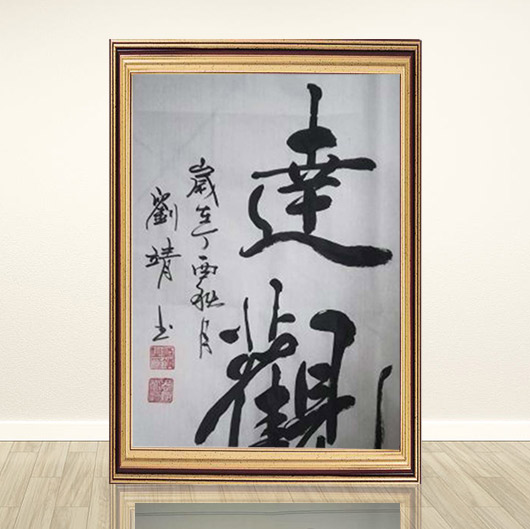 達觀
歲在丁酉秋月
劉靖書